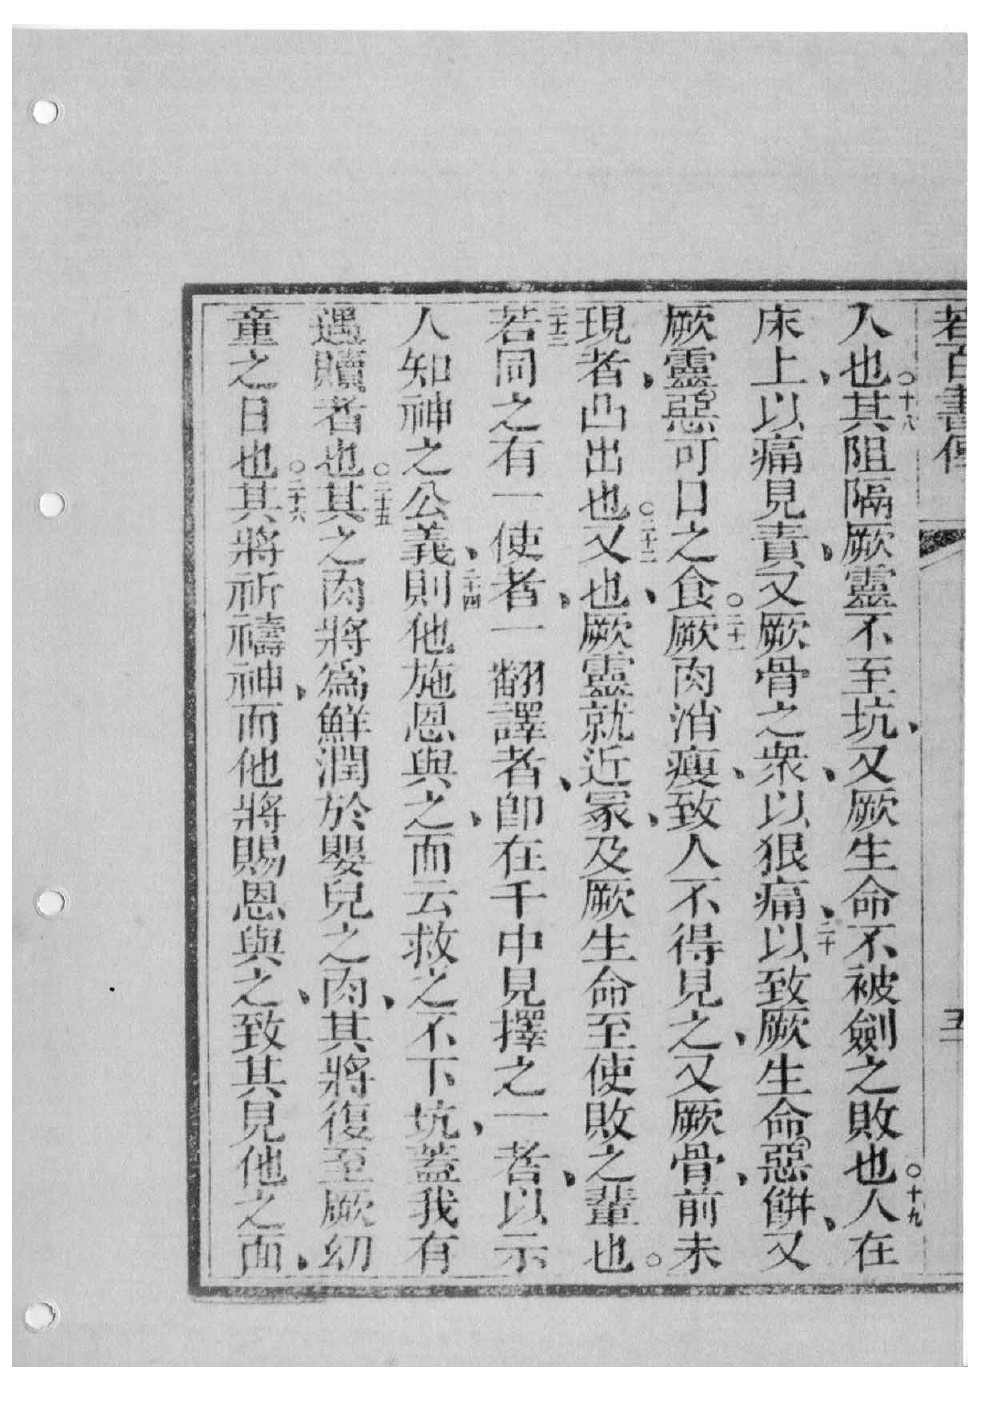 若百書傳
五
人也。十八其阻隔厥靈不至坑、又厥生命不被劍之敗也。十九人在
床上、以痛見責、又厥骨之衆、以狠痛、二十以致厥生命惡餅、又
厥靈惡可口之食。二十一厥肉消瘦、致人不得見之、又厥骨、前未
現者、凸出也。二十二又也、厥靈就近冢、及厥生命至使敗之輩也。
二十三若同之有一使者、一翻譯者、卽在千中見擇之一者、以示
人知神之公義、二十四則他施恩與之、而云救之不下坑、蓋我有
遇贖者也。二十五其之肉將爲鮮潤於嬰兒之肉、其將復至厥幼
童之日也。二十六其將祈禱神、而他將賜恩與之、致其見他之面、